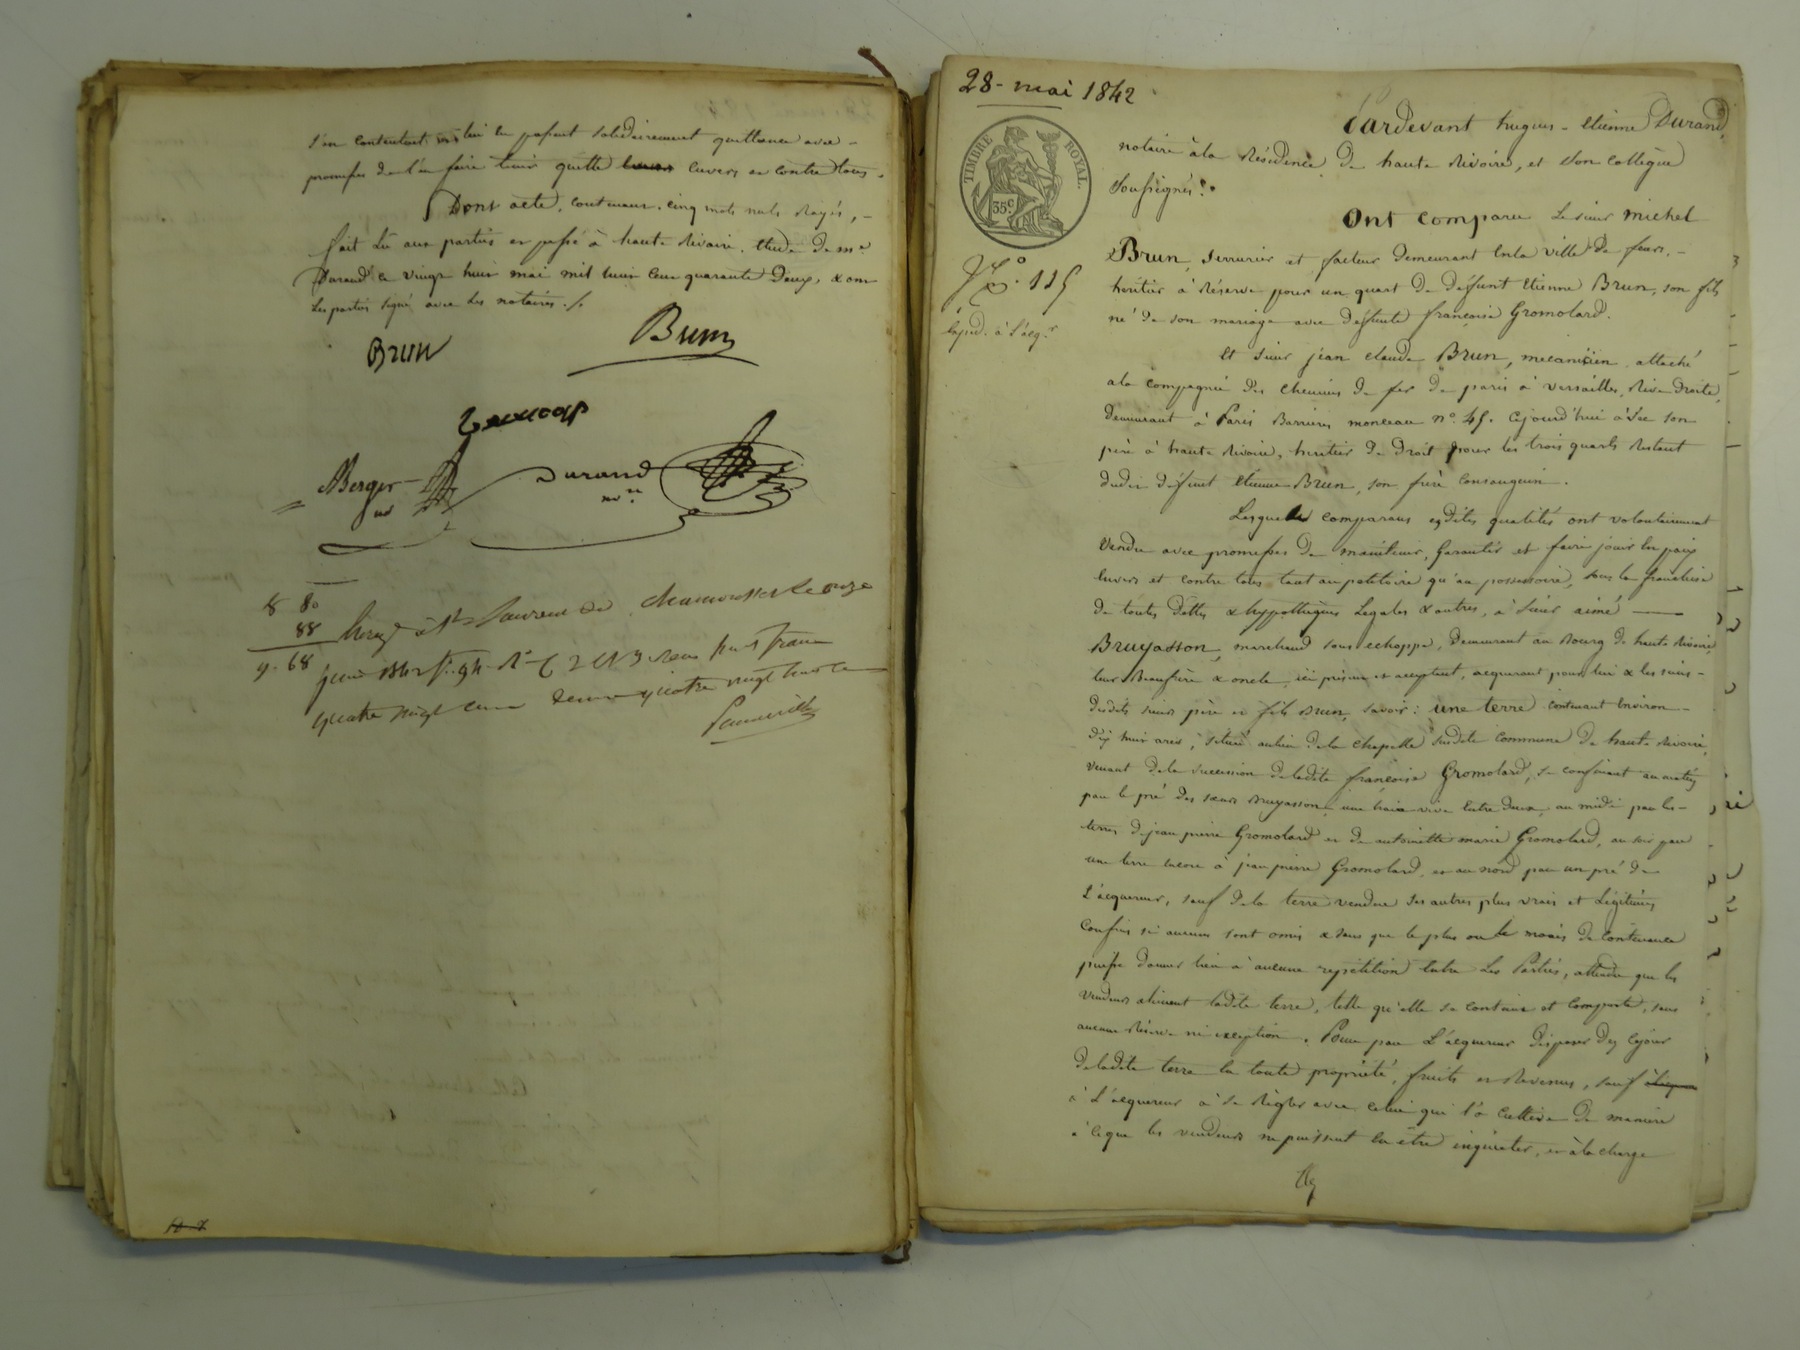 s'en contentant lui en passent solidairement quittance avec -
promesse de l'en faire tenir quitte envers et contre tous.
Dont acte, contenant cinq mots nuls rayés, -
fait lu aux parties et passé à haute rivoire, étude de me
Durand ce vingt huit mai mil huit cent quarante deux, & ont
les parties signé avec les notaires ./.
BRUN
Brun
Berger
nre
Durand
nre
8 80
88
9. 68
Enregé à St Laurent de Chamousset le onze
juin 1842 fo. 94 Ro C 2 et 3 reçu huit francs
quatre vingt cent décime quatre vingt huit ce
28 - mai 1842
TIMBRE ROYAL.
35 C
No. 115
Expéd. à l'acqr
Pardevant hugues - étienne Durand,
notaire à la résidence de haute rivoire, et son collègue
soussignés.
Ont comparu le sieur michel
Brun, serrurier et facteur demeurant en la ville de feurs, -
héritier à réserve pour un quart de défunt étienne Brun, son fils
né de son mariage avec défunte françoise Gromolard.
Et sieur jean claude Brun, mécanicien attaché
à la compagnie des chemins de fer de paris à versailles, rive droite,
demeurant à Paris Barrière monceau no. 45. cejourd'hui avec son
père à haute rivoire, héritier de droit pour les trois quarts restant
dudit défunt étienne Brun, son frère consanguin.
Lesquels comparans esdites qualités ont volontairement
vendu avec promesses de maintenir, garantir et faire jouir en paix
envers et contre tous tant au pétitoire qu'au possessoire, sous la franchise
de toutes dettes & hypothèques légales & autres, à sieur aimé ——
Bruyasson, marchand sous échoppe, demeurant au Bourg de haute rivoire,
leur Beaufrère & oncle, ici présent et acceptant, acquerant pour lui & les siens -
desdits sieurs père et fils Brun, savoir : une terre contenant environ -
dix huit ares, située au lieu de la chapelle susdite commune de haute rivoire,
venant de la succession de ladite françoise Gromolard, se confinant au matin
par le pré des sœurs Bruyasson, une haie vive entre deux, au midi par les -
terres de jean pierre Gromolard et de antoinette marie Gromolard, au soir par
une terre encore à jean pierre Gromolard, et au nord par un pré de
l'acquereur, sauf de la terre vendue ses autres plus vrais et légitimes
confins si aucuns sont omis & sans que le plus ou le moins de contenance
puisse donner lieu à aucune répétition entre les Parties, attendu que les
vendeurs aliènent ladite terre, telle qu'elle se contient et comporte, sans
aucune réserve ni exception. Pour par l'acquereur disposer dès cejour
de ladite terre en toute propriété, fruits et revenus, sauf
à l'acquereur à se régler avec celui qui l'a cultivé de manière
à ce que les vendeurs ne puissent en être inquiétés, et à la charge